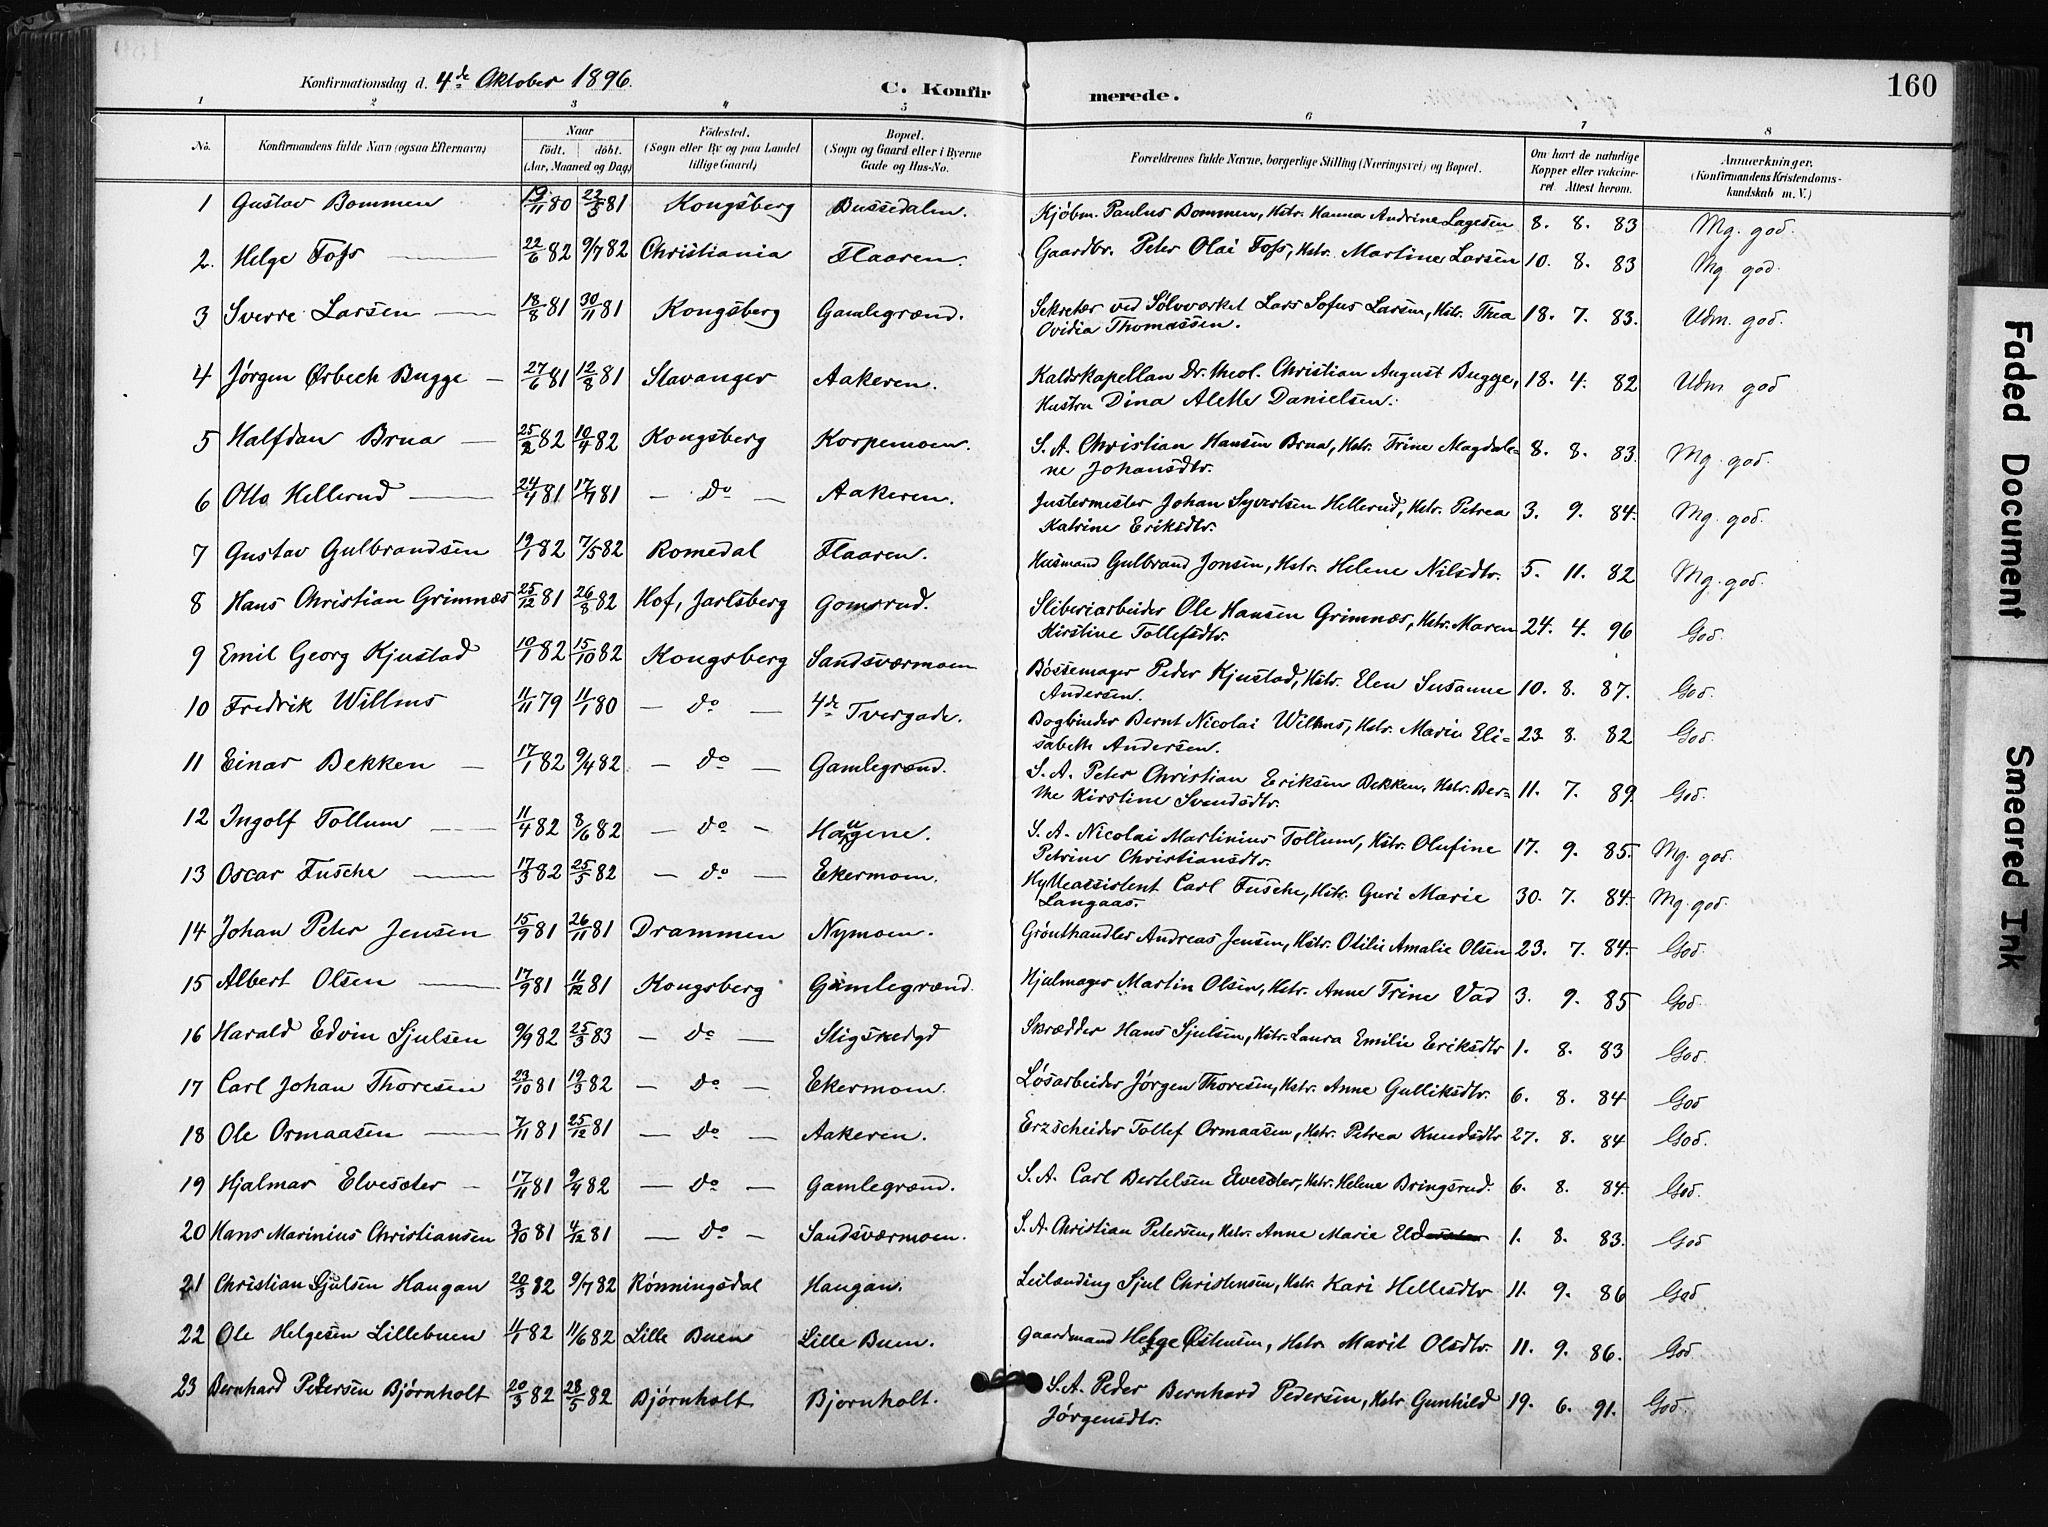 Konfirmationsdag d. 4de Oktober 1896.
C. Konfirmerede.
160
1 2 3 4 5 6 7 8
No. Konfirmandens fulde Navn (ogsaa Efternavn) Naar födt. döbt. (Aar, Maaned og Dag) Födested. (Sogn eller By og paa Landet tillige Gaard) Bopæl. (Sogn og Gaard eller i Byerne Gade og Hus-No. Forældrenes fulde Navne, borgerlige Stilling (Næringsvei) og Bopæl. Om havt de naturlige Kopper eller vaccineret. Attest herom. Anmærkninger. (Konfirmandens Kristendomskundskab m. V.)
1 Gustav Bommen 19/11 80 22/3 81 Kongsberg Bussedalen. Kjøbm. Paulus Bommen, Hstr. Hanna Andrine Lagesen 8. 8. 83 Mg. god.
2. Helge Foss 22/6 82 9/7 82 Christiania Flaaren. Gaardbr. Peter Olai Foss, Hstr. Martine Larsen 10. 8. 83 Mg god.
3 Sverre Larsen 18/8 81 30/11 81 Kongsberg Gamlegrænd. Sekretær ved Sølvværket Lars Sofus Larsen, Hstr. Thea
Ovidia Thomassen. 18. 7. 83. Udm. god.
4 Jørgen Ørbech Bugge 27/6 81 12/8 81 Stavanger Aakeren. Kaldskapellan Dr. theol. Christian August Bugge,
Hustru Dina Alette Danielsen. 18. 4. 82 Udm. god
5 Halfdan Brua 25/2 82 10/4 82 Kongsberg Korpemoen. S. A. Christian Hansen Brua, Hstr. Trine Magdale-
ne Johansdtr. 8. 8. 83. Mg. god.
6 Otto Hellerud 24/4 81 17/7 81 — Do — Aakeren. Justermester Johan Syvertsen Hellerud, Hstr. Petrea
Katrine Eriksdtr. 3. 9. 84. Mg. god.
7 Gustav Gulbrandsen 19/1 82 7/5 82 Romedal Flaaren. Husmand Gulbrand Jonsen, Hstr. Helene Nilsdtr. 5. 11. 82 Mg. god.
8 Hans Christian Grimnæs 25/12 81 26/8 82 Hof, Jarlsberg Gomsrud. Sliberiarbeider Ole Hansen Grimnæs, Hstr. Maren
Kirstine Tollefsdtr. 24. 4. 96 God.
9 Emil Georg Kjustad 10/1 82 15/10 82 Kongsberg Sandsværmoen Bøssemager Peder Kjustad, Hstr. Elen Susanne
Andersen. 10. 8. 87. God.
10 Fredrik Willms 11/11 79 11/1 80 — Do — 4de Tvergade. Bogbinder Bernt Nicolai Willms, Hstr. Marie Eli-
sabeth Andersen. 23. 8. 82 God.
11 Einar Bekken 17/1 82 9/4 82 — Do — Gamlegrænd. S. A. Peter Christian Eriksen Bekken, Hstr. Ber-
the Kirstine Svendsdtr. 11. 7. 89. God.
12 Ingolf Tollum 11/4 82 8/6 82 — Do — Haugene. S. A. Nicolai Martinius Tollum, Hstr. Olufine
Petrine Christiansdtr. 17. 9. 85. Mg. god.
13 Oscar Fusche 17/3 82 25/5 82 — Do — Ekermoen. Hytteassistent Carl Fusche, Hstr. Guri Marie
Langaas. 30. 7. 84. Mg. god.
14 Johan Peter Jensen 15/9 81 26/11 81 Drammen Nymoen. Grønthandler Andreas Jensen, Hstr. Otilie Amalie Olsen 23. 7. 84. God.
15 Albert Olsen 17/9 81 11/12 81 Kongsberg Gamlegrænd. Hjulmager Martin Olsen, Hstr. Anne Trine Vad 3. 9. 85 God.
16 Harald Edvin Sjulsen 9/9 82 25/3 83 — Do — Stigsrudgd Skrædder Hans Sjulsen, Hstr. Laura Emilie Eriksdtr 1. 8. 83 God.
17 Carl Johan Thoresen 23/10 81 19/3 82 — Do — Ekermoen. Løsarbeider Jørgen Thoresen, Hstr. Anne Gulliksdtr. 6. 8. 84 God
18 Ole Ormaasen 7/11 81 25/12 81 — Do — Aakeren. Erzscheider Tollef Ormaasen, Hstr. Petrea Knudsdtr 27. 8. 84 God.
19 Hjalmar Elvesæter 17/11 81 9/4 82 — Do — Gamlegrænd. S. A. Carl Bertelsen Elvesæter, Hstr. Helene Bringsrud. 6. 8. 84. God.
20 Hans Marinius Christiansen 9/10 81 4/12 81 — Do — Sandsværmoen. S. A. Christian Petersen, Hstr. Anne Marie 1. 8. 83. God
21 Christian Sjulsen Haugan 20/3 82 9/7 82 Rønningsdal Haugan. Leilænding Sjul Christensen, Hstr. Kari Hellesdtr 11. 9. 86 God.
22 Ole Helgesen Lillebuen 11/1 82 11/6 82 Lille Buen Lille Buen. Gaardmand Helge Østensen, Hstr. Marit Olsdtr. 11. 9. 86. God
23 Bernhard Pedersen Bjørnholt 20/3 82 28/5 82 Bjørnholt Bjørnholt. S. A. Peder Bernhard Pedersen, Hstr. Gunhild
Jørgensdtr. 19. 6. 91. God.
Faded Document
Smeared Ink